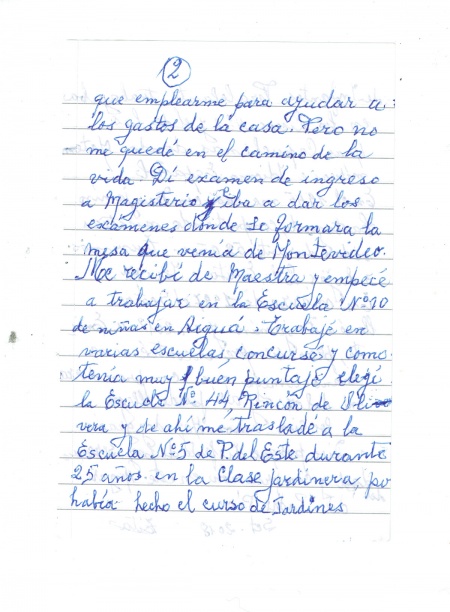 2
que emplearme para ayudar a
los gastos de la casa. Pero no
me quedé en el camino de la
vida. Dí examen de ingreso
a Magisterio y iba a dar los
exámenes donde se formara la
mesa que venía de Montevideo.
Me recibí de Maestra y empecé
a trabajar en la Escuela Nº 10
de niñas en Aiguá. Trabajé en
varias escuelas, concursé y como
tenía muy buén puntaje elegí
la Escuela Nº 44, Rincón de
vera y de ahí me trasladé a la
Escuela Nº 5 de P. del Este durante
25 años en la Clase jardinera, po
había hecho el curso de Jardines